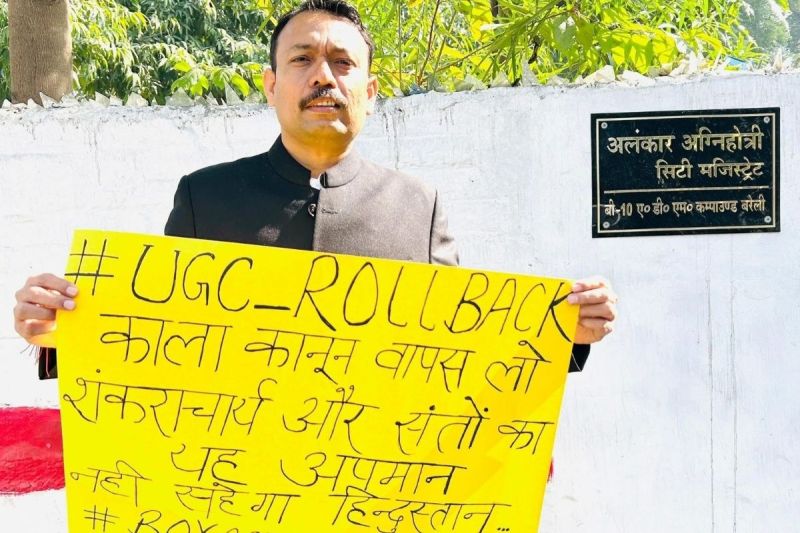 अलंकार अग्निहोत्री
सिटी मजिस्ट्रेट
बी-10 ए० डी० एम० कम्पाउण्ड बरेली
#UGC_ROLLBACK
काला कानून वापस लो
शंकराचार्य और संतों का
यह अपमान
नही सहेगा हिन्दुस्तान...